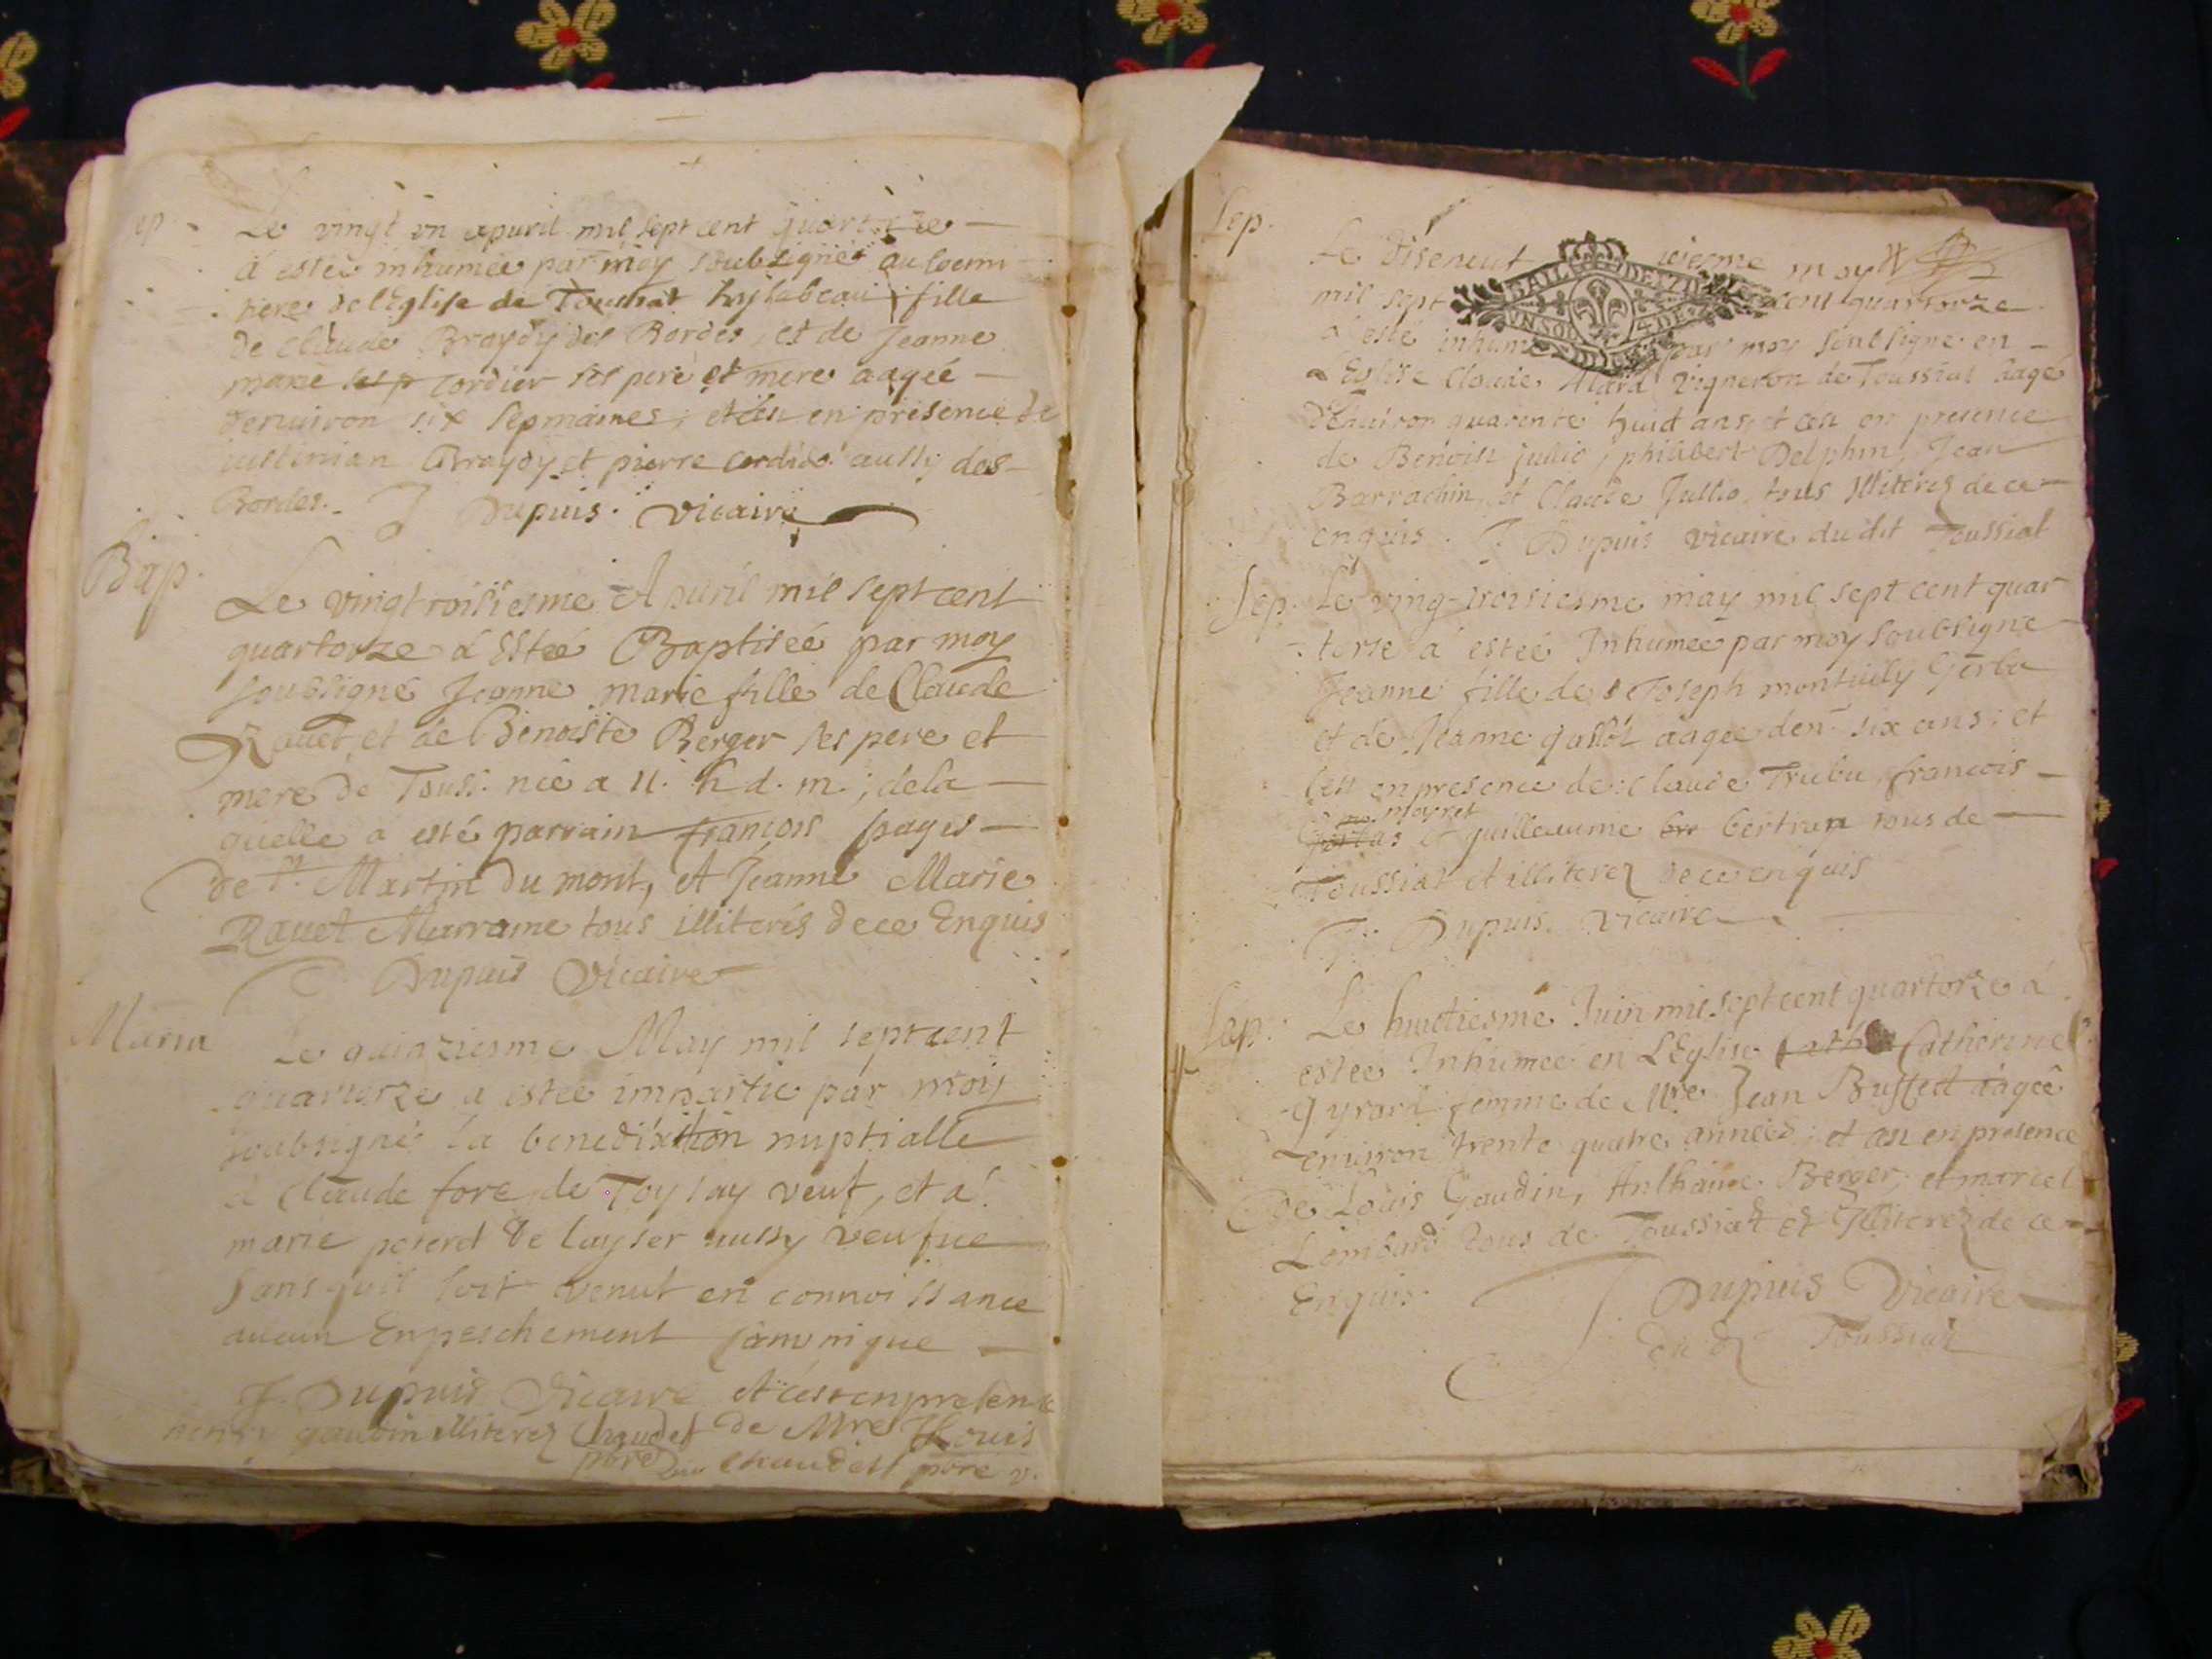 Sep.
Le vingt un apuril mil sept cent quartorze
a esteé inhumeé par moy soubsigné au
tiere de l'Eglise de Toussiat hysabeau fille
de Claude Braydy des Bordes, et de Jeanne
marie cordier ses pere et mere aageé
denuiron six sepmaines, et cest en presence de
iustinian Braydy et pierre cordier aussy des
Bordes. J Dupuis. vicaire
Bap.
Le vingt roisiesme Apuril mil sept cent
quartorze a Esteé Baptiseé par moy
soubsigné Jeanne marie fille de Claude
Rauet et de Benoiste Berger ses pere et
mere de Touss. neé a 11. h d. m; de la
quelle a esté parrain françois pages
de St. Martin du mont, et Jeanne Marie
Rauet Marraine tous illiterés de ce Enquis
J Dupuis Vicaire
Maria
Le quinziesme May mil sept cent
quartorze a esteé impartie par moy
soubsigné la benediction nuptialle
a Claude fore de Toysay veuf, et a
marie pererd de luyser aussy veufue
sans quil soit venut en connoissance
aucun Enpeschement Canonique
J. Dupuis Vicaire et cest en presence
henry gaudin illiterez Chaudet de Mre Louis
pbre Chaudet pbre v.
Sep.
Le diseneuf uiesme may
GAIL DE
UN SOL 4 DE
mil sept cent quartorze
a esté inhumé par moy soubsigné en
Eglise Claude Alard Vigneron de Toussiat aagé
d'Enuiron quarente huict ans et cest en presence
de Benoist Jullio, philibert Delphin, Jean
Barrachin, et Claude Jullio, tous illiterés de ce
enquis. J Dupuis vicaire dudit Toussiat
Sep. Le ving-troisiesme may mil sept cent quar
torse a esteé Inhumeé par moy soubsigné
Jeanne fille de Joseph montuily
et de Jeanne gallôt aagee den. six ans; et
cest en presence de Claude Trubu françois
mayret
et guilleaume bertran tous de
Toussiat et illiterez de ce enquis
J. Dupuis. Vicaire
Sep. Le huictiesme Juin mil sept cent quartorze a
estee Inhumeé en L'Eglise Catherine
gyrard femme de Mre Jean Buffed aageé
enuiron trente quatre annees; et cest en presence
de Louis Gaudin, Anthaine Berger, et marcel
Lombard tous de Toussiat et Illiterez de ce
Enquis. J Dupuis Vicaire
du d. Toussiat